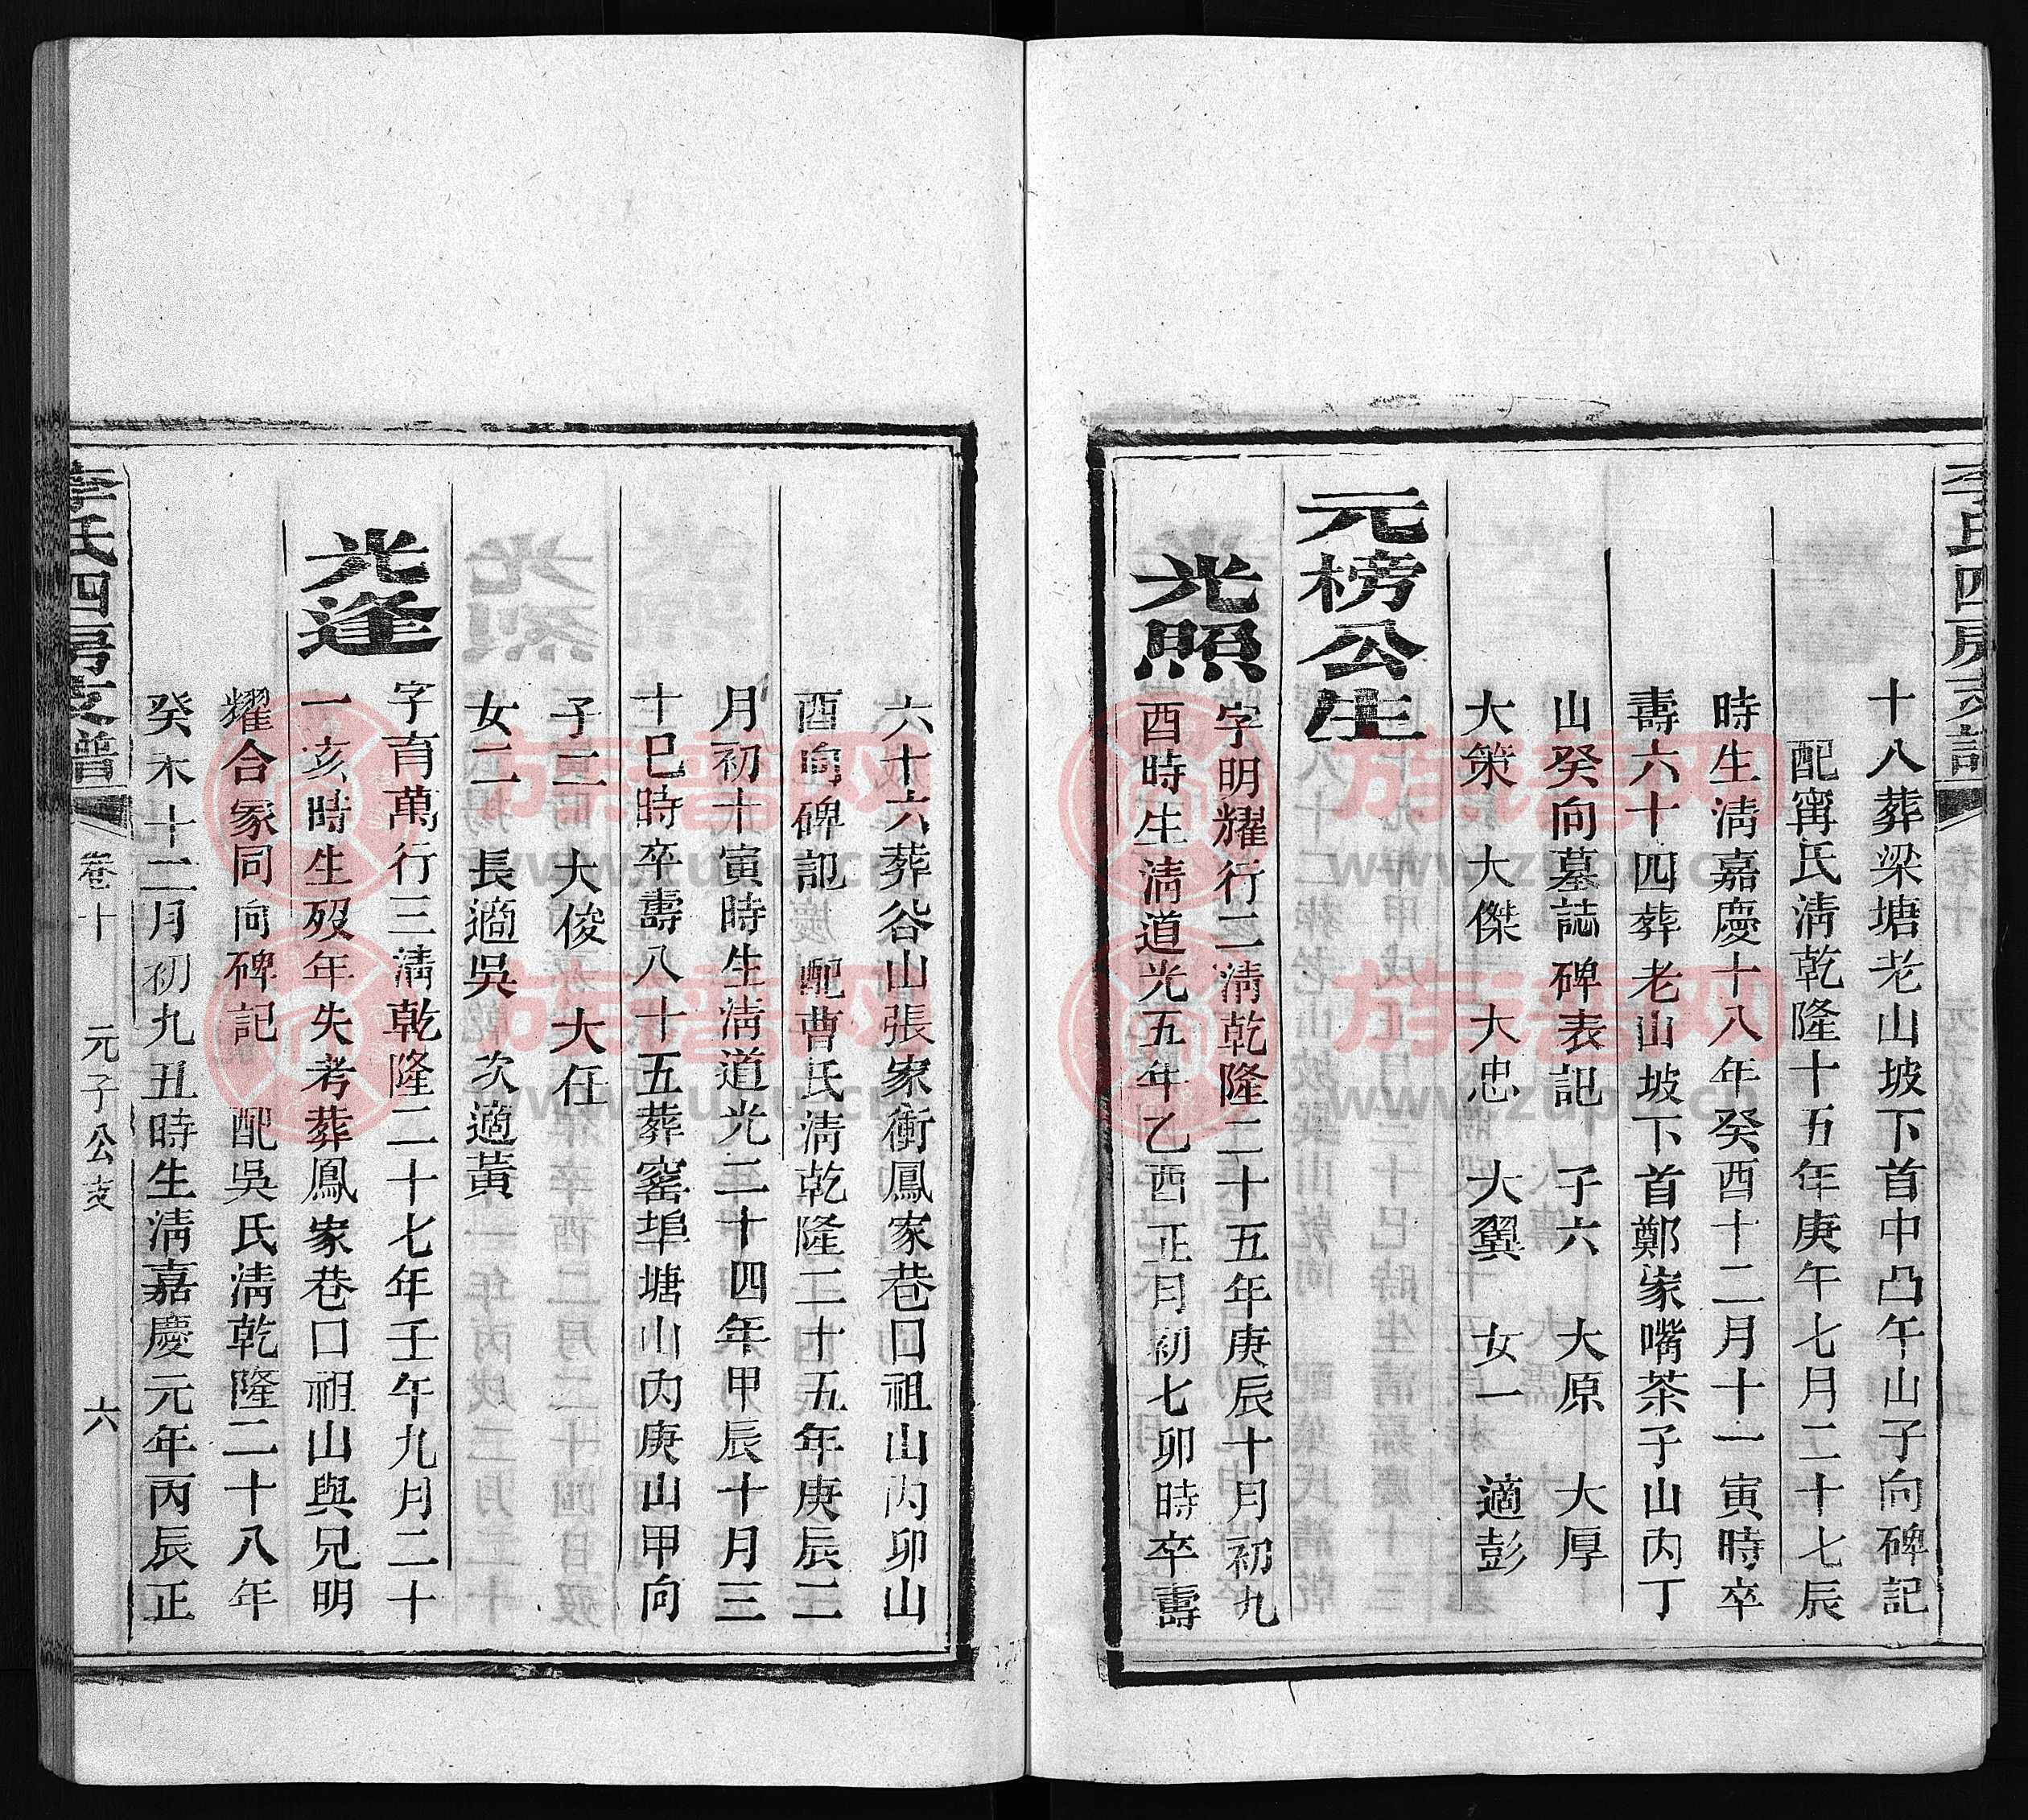 李氏四房支譜
十八葬梁塘老山坡下首中凸午山子向碑記
配甯氏淸乾隆十五年庚午七月二十七辰
時生淸嘉慶十八年癸酉十二月十一寅時卒
壽六十四葬老山坡下首鄭家嘴茶子山丙丁
山癸向墓誌碑表記 子六 大原 大厚
大策 大傑 大忠 大翼 女一 適彭
元榜公生
光照
字明耀行二淸乾隆二十五年庚辰十月初九
酉時生淸道光五年乙酉正月初七卯時卒壽
六十六葬谷山張家衝鳳家巷口祖山內卯山
酉向碑記 配曹氏淸乾隆二十五年庚辰二
月初十寅時生淸道光二十四年甲辰十月三
十巳時卒壽八十五葬窰埠塘山內庚山甲向
子二 大俊 大任
女二 長適吳 次適黃
光逢
字育萬行三淸乾隆二十七年壬午九月二十
一亥時生歿年失考葬鳳家巷口祖山與兄明
耀合冢同向碑記 配吳氏淸乾隆二十八年
癸未十二月初九丑時生淸嘉慶元年丙辰正
李氏四房支譜 卷十 元子公支 六
族譜网
www.zupu.cn
族譜网
www.zupu.cn
族譜网
www.zupu.cn
族譜网
www.zupu.cn